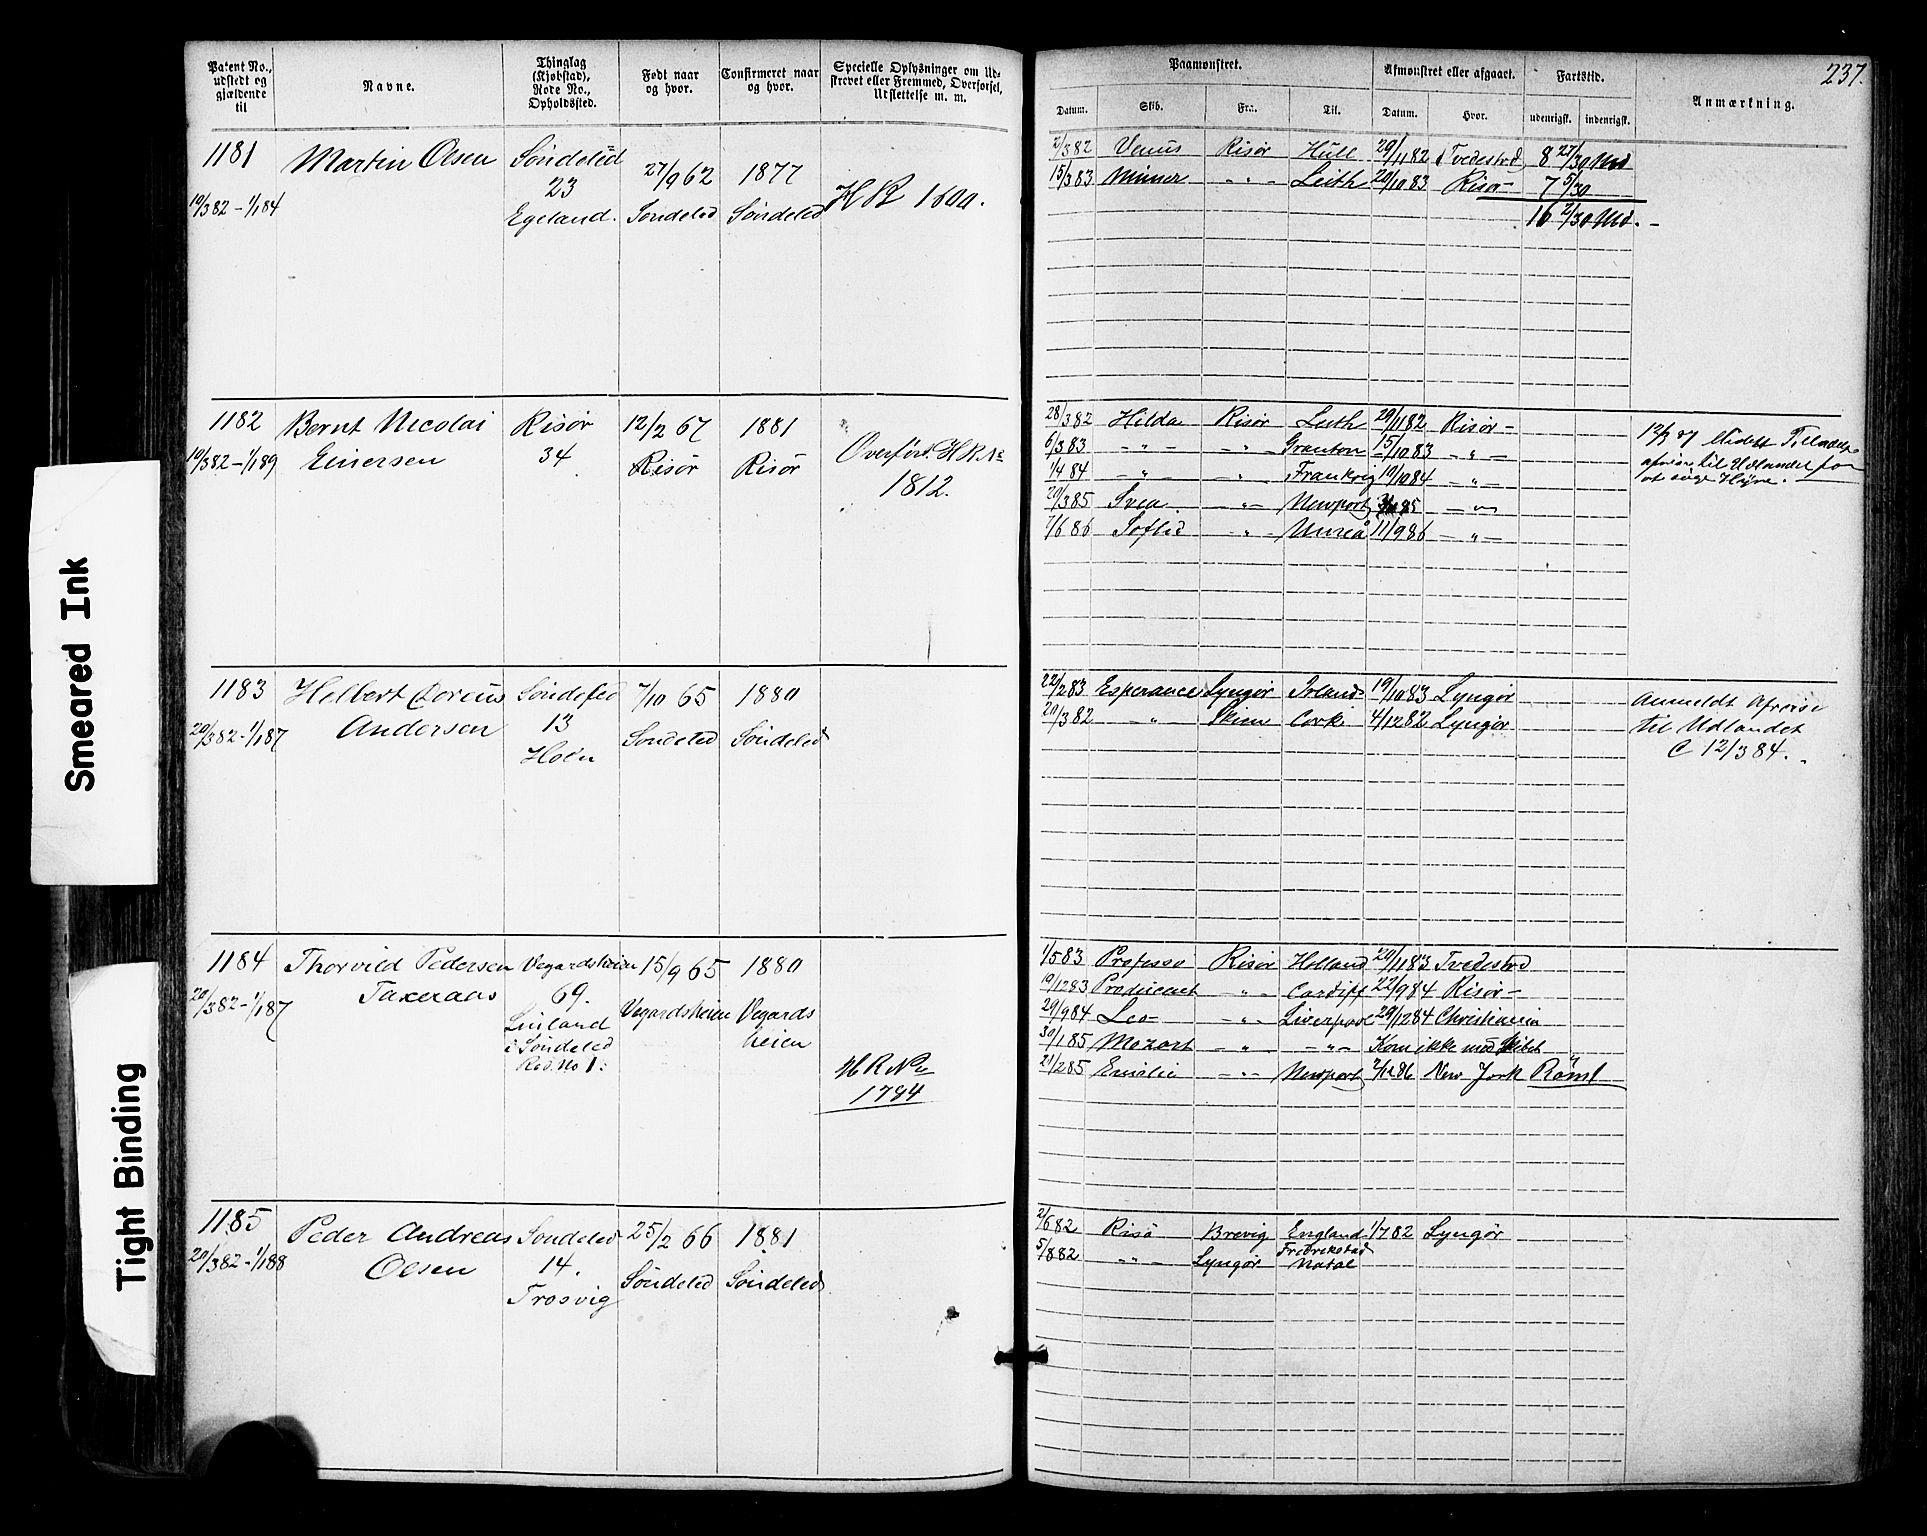 Smeared Ink
Tight Binding
Patent No., udstedt og gjældende til
Navne.
Thinglag (Kjøbstad), Rode No., Opholdssted.
Født naar og hvor.
Confirmeret naar og hvor.
Specielle Oplysninger om Udskrevet eller Fremmed, Overførsel, Udslettelse m. m.
Paamønstret.
Afmønstret eller afgaaet.
Fartstid.
Anmærkning.
237.
Datum.
Skib.
Fra.
Til.
Datum.
Hvor.
udenrigsk.
indenrigsk.
1181
19/3 82 - 1/1 84
Martin Olsen
Söndeled
23
Egeland.
27/9 62
Söndeled
1877
Söndeled
H R 1600.
Venus Risør Hull 29/11 82 Tvedestrd 8 27/30 Md
15/3 83 Minner - " - Leith 20/10 83 Risør - 7 5/30
16 2/30 Md. -
1182
19/3 82 - 1/1 89
Bernt Nicolai
Einersen
Risør
34
12/2 67
Risør
1881
Risør
Overført H R No
1812.
28/3 82 Hilda Risør Leith 29/11 82 Risør -
6/3 83 - " - - " - Granton 15/10 83 - " -
1/4 84 - " - - " - Frankrig 19/10 84 - " -
20/3 85 Svea - " - Newport - " -
7/6 86 - " - Umeå 11/9 86 - " -
til Udlandet for
at söge Hyre.
1183
20/3 82 - 1/1 87
Helbert Loreus
Andersen
Söndeled
13
Hoen
7/10 65
Söndeled
1880
Söndeled
22/2 83 Esperance Lyngør Irland 19/10 83 Lyngør
20/3 82 - " - Skien Cork 4/12 82 Lyngør
Anmeldt Afreise
til Udlandet
C 12/3 84.
1184
20/3 82 - 1/1 87
Thorvild Pedersen
Taxeraas
Vegardsheien
69.
Linland
i Söndeled
Rod. No 1.
15/9 65
Vegardsheien
1880
Vegards
heien
H R No
1784
1/5 83 Professo Risør Holland 20/11 83 Tvedestrd
19/12 83 Producent - " - Cardiff 22/9 84 Risør -
29/9 84 Leo - - " - Liverpool 29/12 84 Christiania
30/1 85 Mozart - " - - " - Kom ikke med Skibet
21/2 85 Emilie - " - Newport New York Römt
1185
20/3 82 - 1/1 88
Peder Andreas
Olsen
Söndeled
14.
Trosvig
25/2 66
Söndeled
1881
Söndeled
2/6 82 Risö Brevig England 1/7 82 Lyngør
5/8 82 - " - Lyngør Fredrekstad
Natal